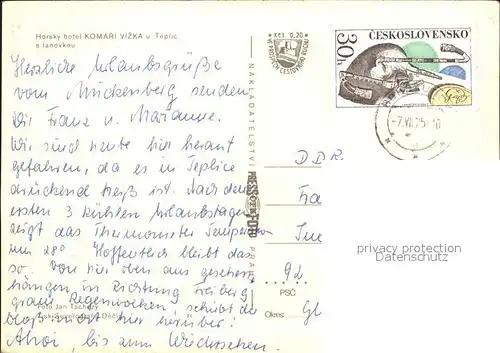 Horský hotel KOMÁŘÍ VÍŽKA u Teplic
s lanovkou
Herzliche Urlaubsgrüße
vom Mückenberg senden
wir Franz u. Marianne.
Wir sind heute hier herauf
gefahren, da es in Teplice
drückend heiß ist. Nach den
ersten 3 kühlen Urlaubstagen
zeigt das Thermometer Temperaturen
um 28° Hoffentlich bleibt das
so. Von hier oben aus gesehen
hängen in Richtung Freiberg
graue Regenwolken, schiebt die
bloß nicht hier herüber!
Ahoi, bis zum Wiedersehen.
Foto Jan Tachezý
NAKLADATELSTVÍ
PRESSFOTO
PRAHA
Kčs 0,20
VE PROSPĚCH CESTOVNÍHO RUCHU
ČESKOSLOVENSKO
30h
-7.VII.75-18
DDR
Fa
92
PSČ
Okres
Gl
privacy protection
Datenschutz